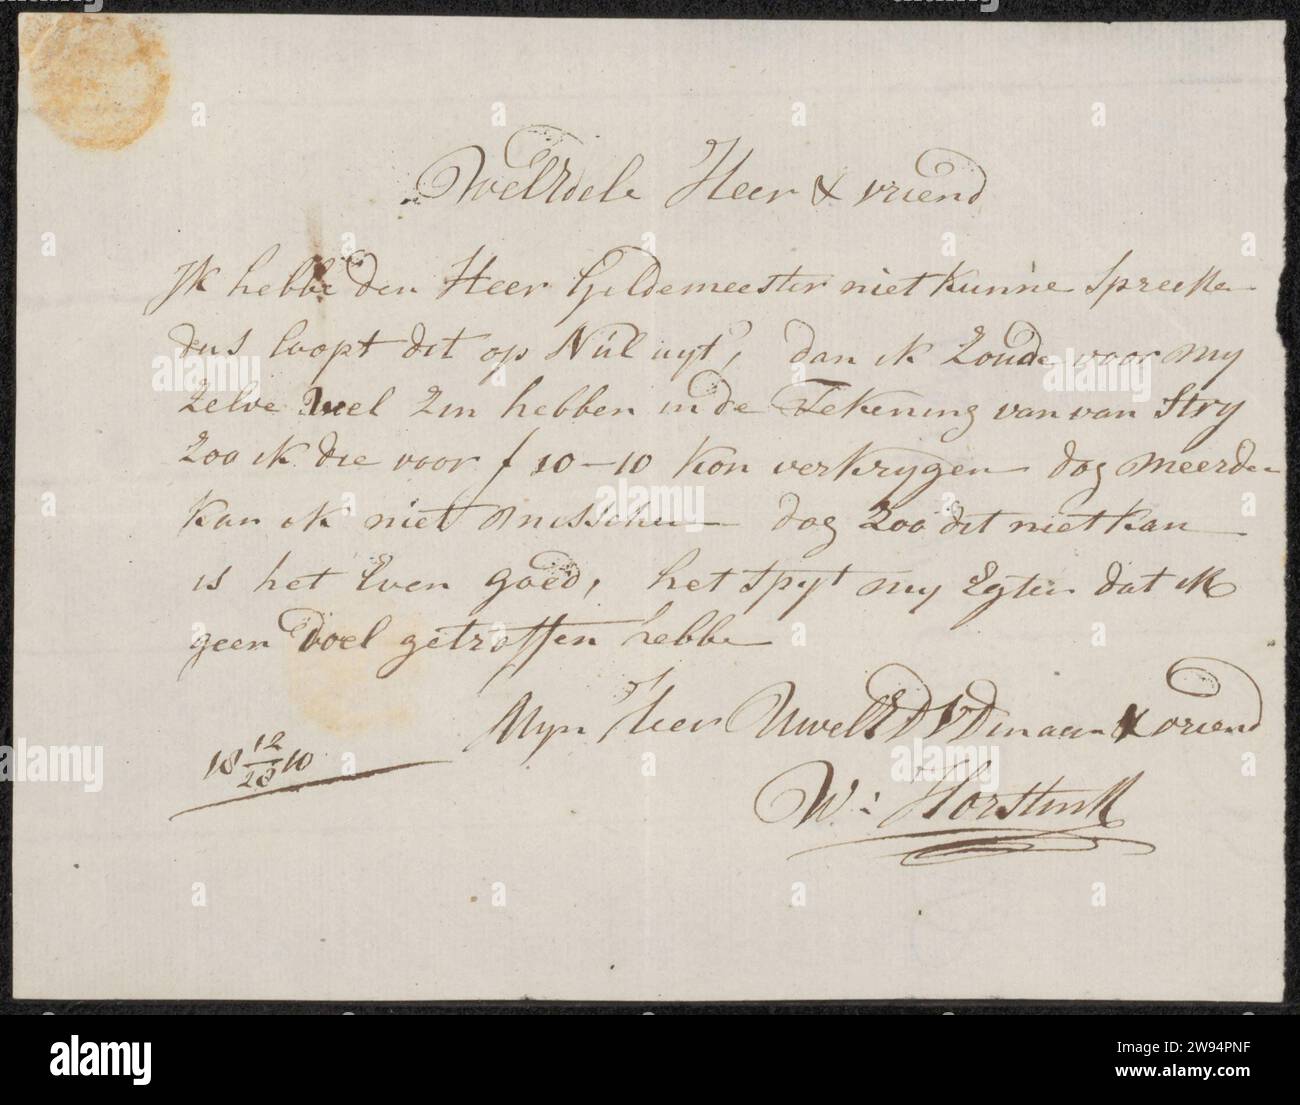 WelEdele Heer & vriend
Ik hebbe den Heer Gildemeester niet kunne spreeke
dus loopt dit op Nul uyt, dan ik zoude voor my
zelve wel zin hebben in de Tekening van van Stry
zoo ik die voor f 10-10 kon verkrygen dog meerder
kan ik niet dog zoo dit niet kan
is het Even goed, het spyt my Egter dat ik
geen Doel getroffen hebbe
Myn Heer UwelED Dienaar & vriend
18 12/28 10
W: Horstink
alamy
Image ID: 2W94PNF
www.alamy.com